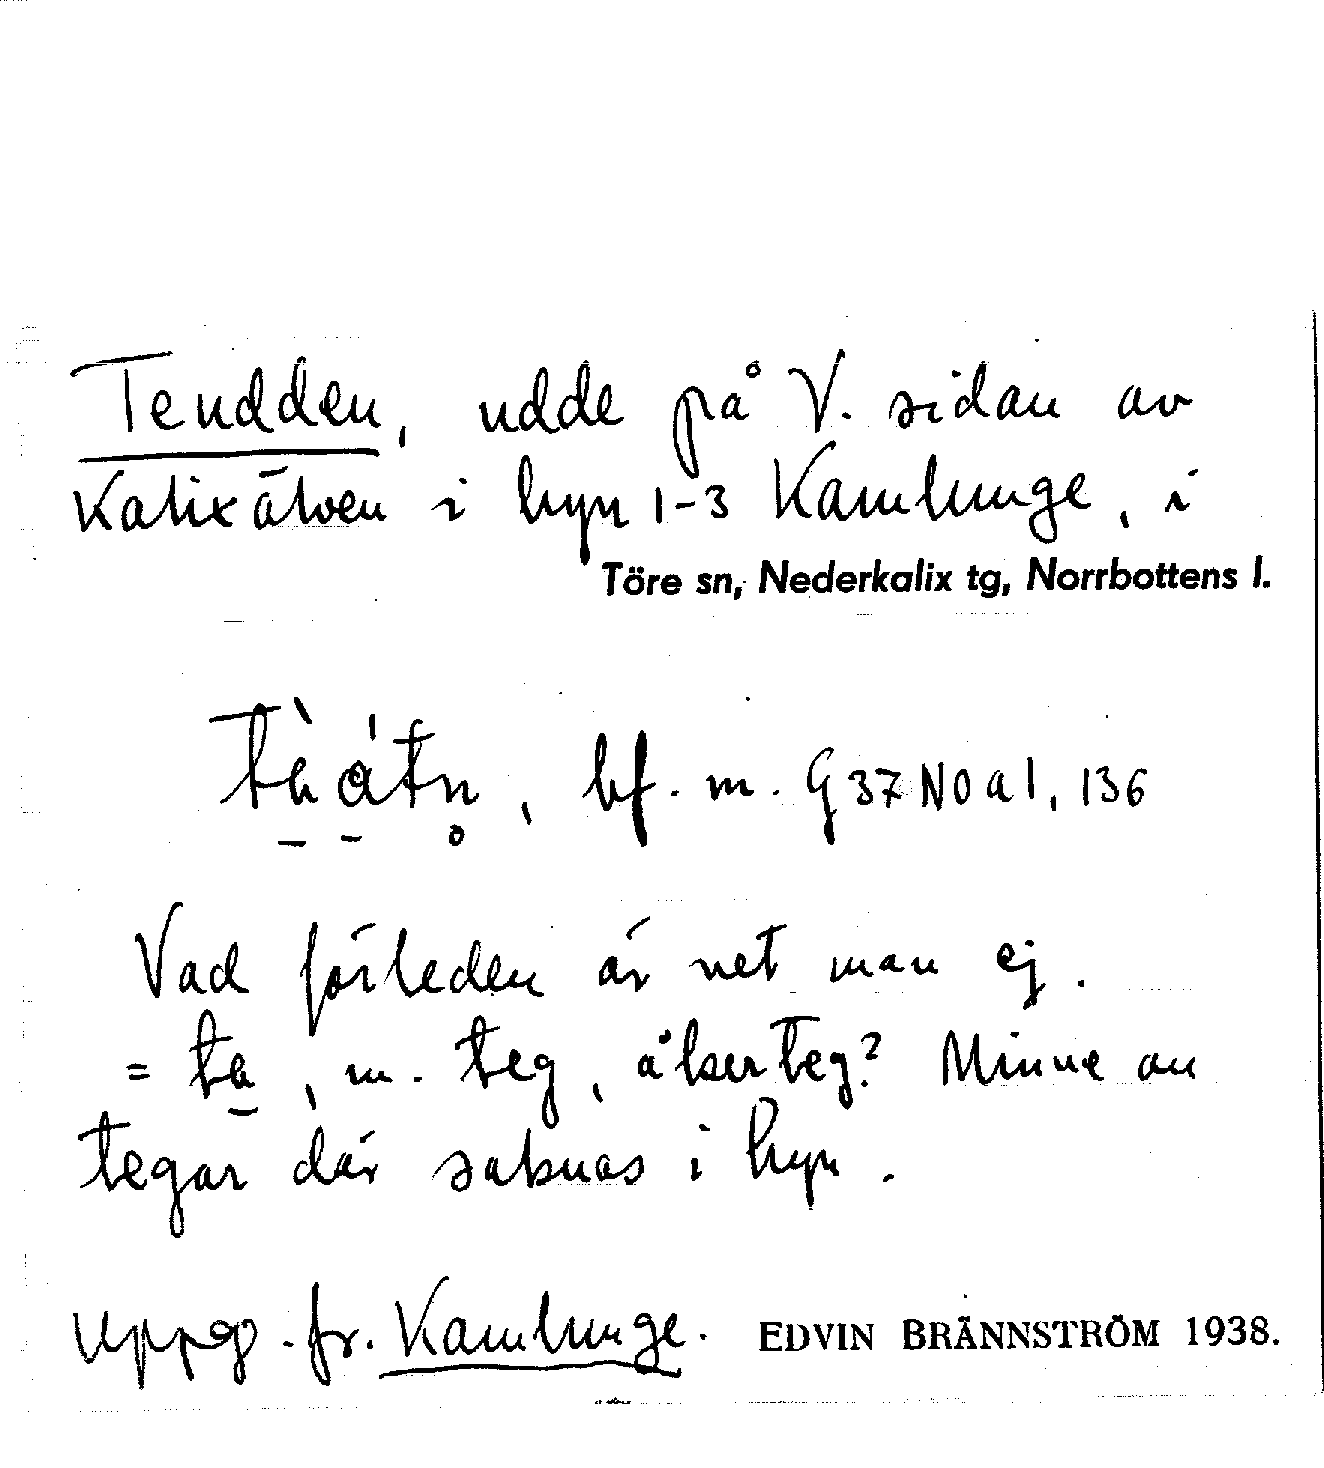 Teudden, udde på V. sidan av
Kalixälven i byn 1-3 Kamlunge, i
Töre sn, Nederkalix tg, Norrbottens l.
bf. m. G 37 NO a 1, 136
Vad förleden är vet man ej.
= ta, m. teg, åkerteg? Minne av
tegar där saknas i byn.
Uppg. fr. Kamlunge. EDVIN BRÄNNSTRÖM 1938.